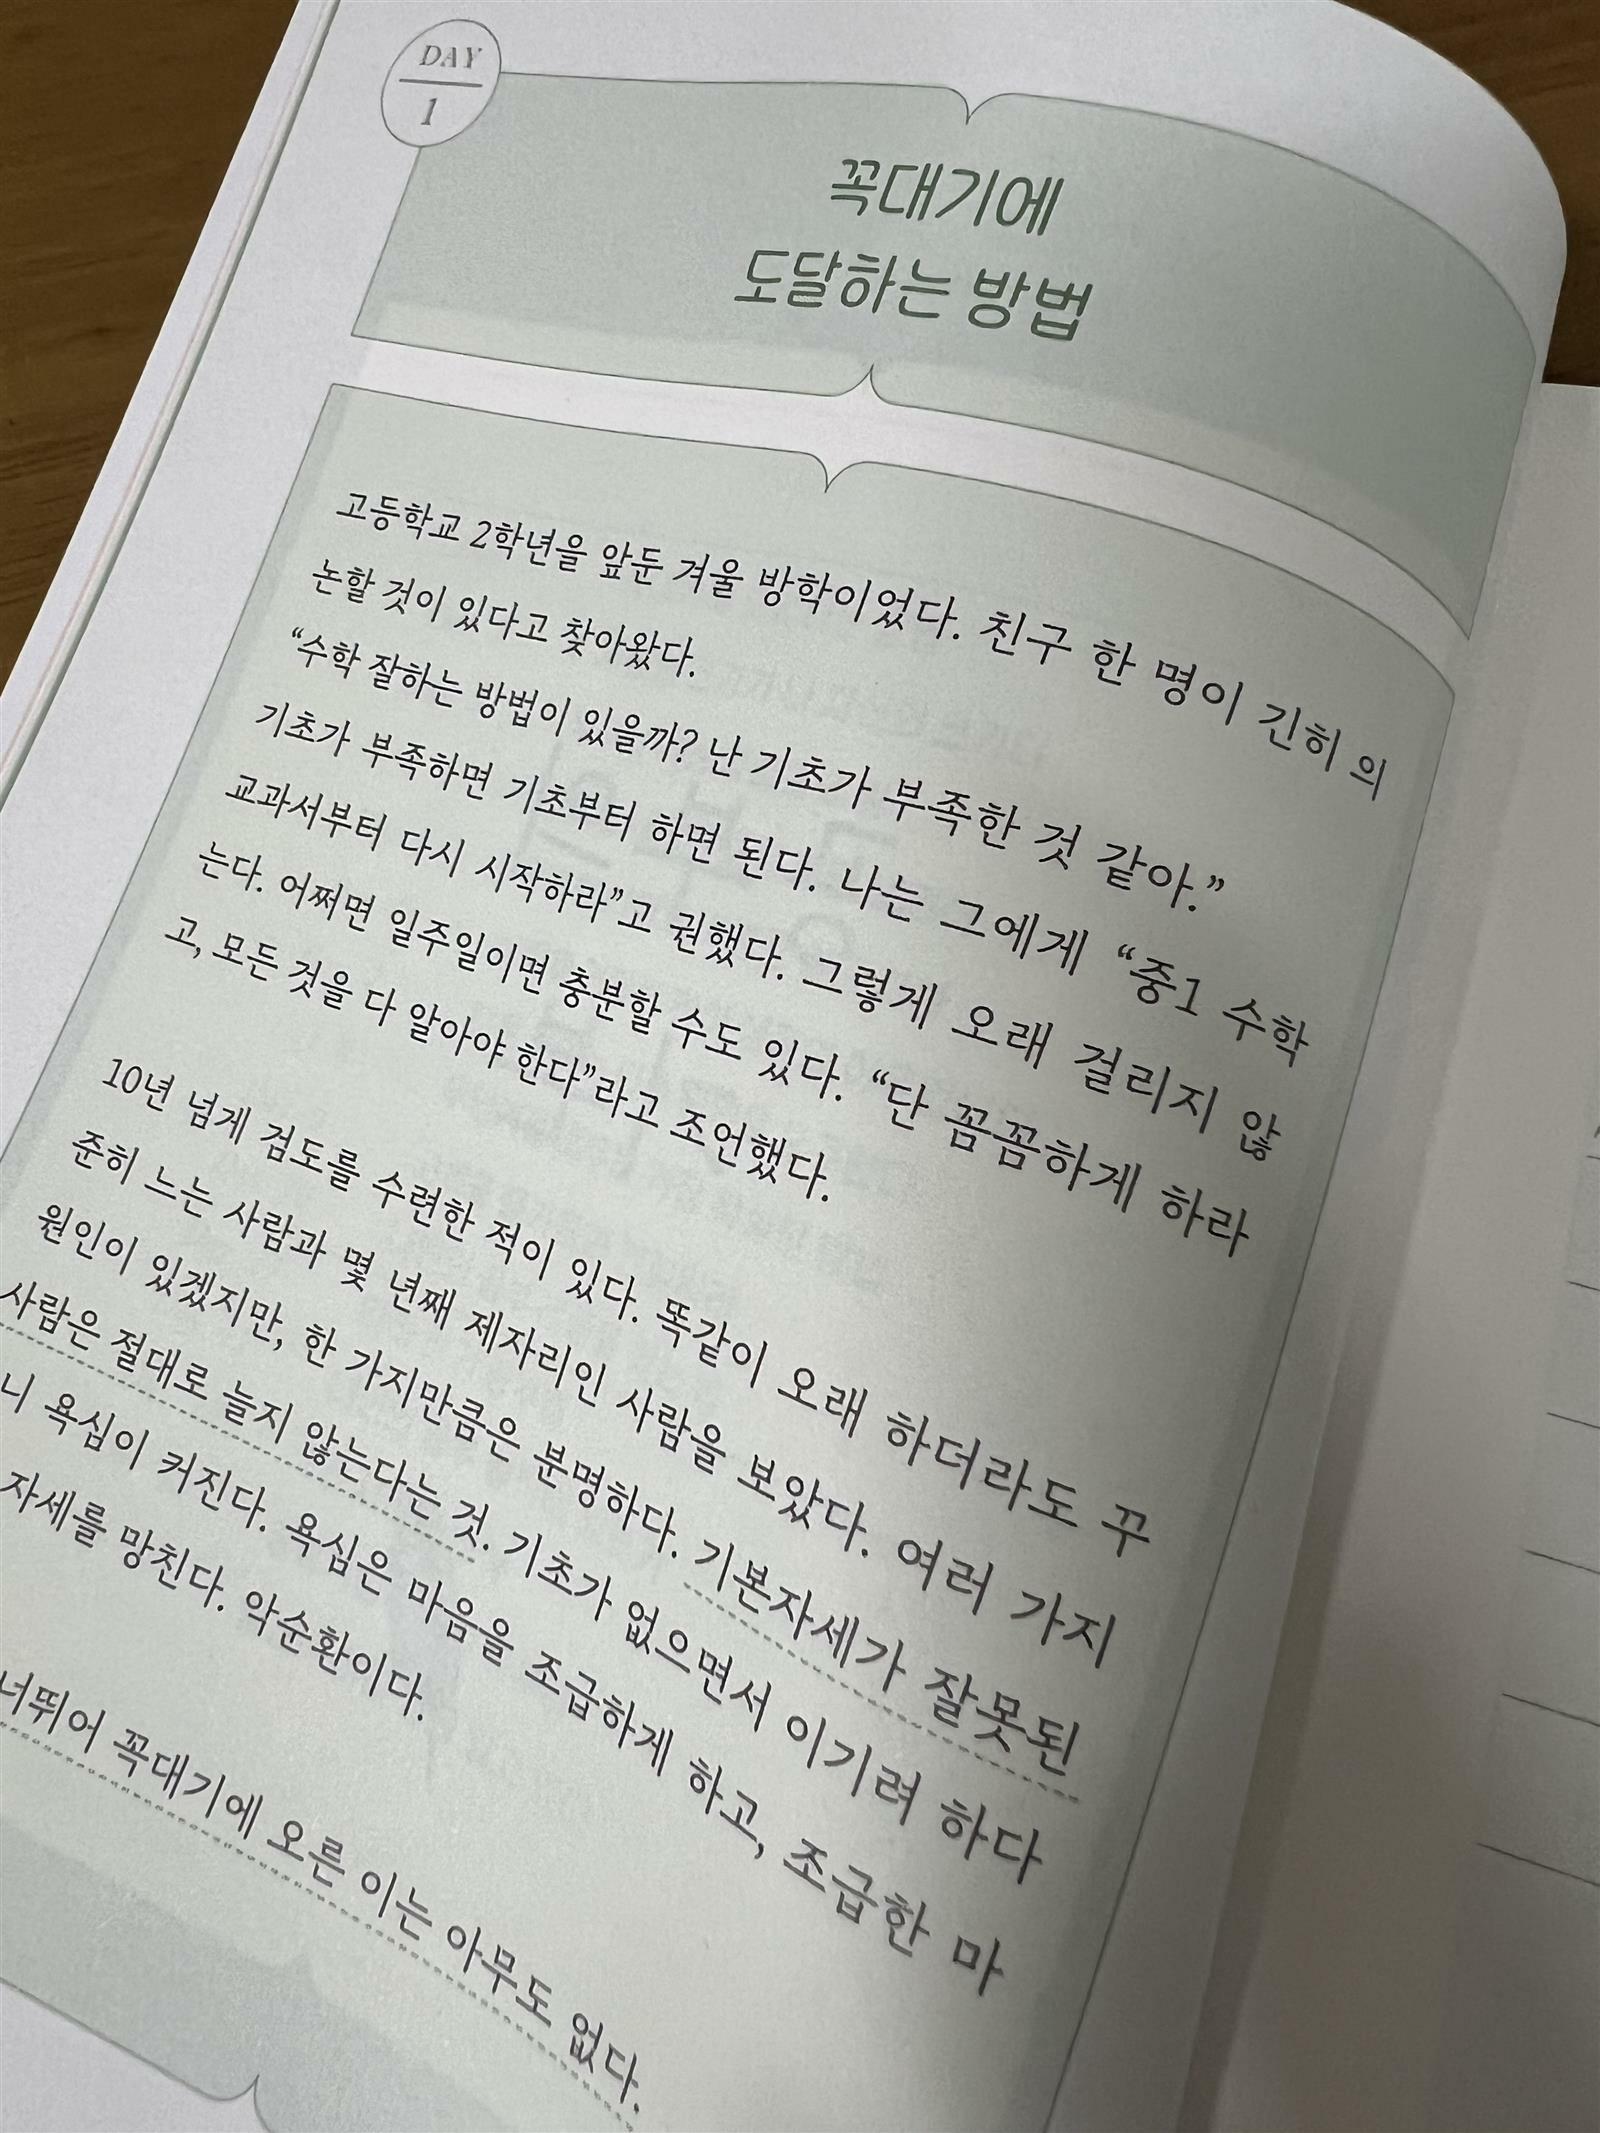 DAY
1
꼭대기에
도달하는 방법
고등학교 2학년을 앞둔 겨울 방학이었다. 친구 한 명이 긴히 의
논할 것이 있다고 찾아왔다.
“수학 잘하는 방법이 있을까? 난 기초가 부족한 것 같아.”
기초가 부족하면 기초부터 하면 된다. 나는 그에게 “중1 수학
교과서부터 다시 시작하라”고 권했다. 그렇게 오래 걸리지 않
는다. 어쩌면 일주일이면 충분할 수도 있다. “단 꼼꼼하게 하라
고, 모든 것을 다 알아야 한다”라고 조언했다.
10년 넘게 검도를 수련한 적이 있다. 똑같이 오래 하더라도 꾸
준히 느는 사람과 몇 년째 제자리인 사람을 보았다. 여러 가지
원인이 있겠지만, 한 가지만큼은 분명하다. 기본자세가 잘못된
사람은 절대로 늘지 않는다는 것. 기초가 없으면서 이기려 하다
니 욕심이 커진다. 욕심은 마음을 조급하게 하고, 조급한 마
자세를 망친다. 악순환이다.
너뛰어 꼭대기에 오른 이는 아무도 없다.